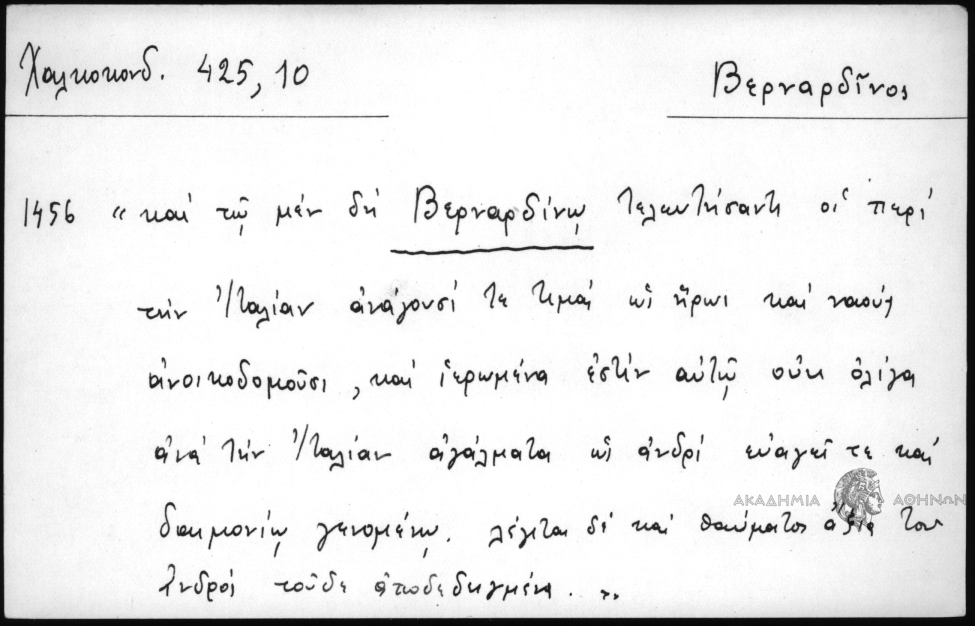 Χαλκοκονδ. 425, 10
Βερναρδῖνος
1456 “ καὶ τῷ μὲν δὴ Βερναρδίνῳ τελευτήσαντι οἱ περὶ
τὴν Ἰταλίαν ἀνάγουσί τε τιμὰς ὡς ἥρωι καὶ ναοὺς
ἀνοικοδομοῦσι, καὶ ἱερωμένα ἐστὶν αὐτῷ οὐκ ὀλίγα
ἀνὰ τὴν Ἰταλίαν ἀγάλματα ὡς ἀνδρὶ εὐαγεῖ τε καὶ
ΑΚΑΔΗΜΙΑ ΑΘΗΝΩΝ
δαιμονίῳ γενομένῳ. λέγεται δὲ καὶ θαύματος ἄξια τοῦ
ἀνδρὸς τοῦδε ἀποδεδειγμένα. ”